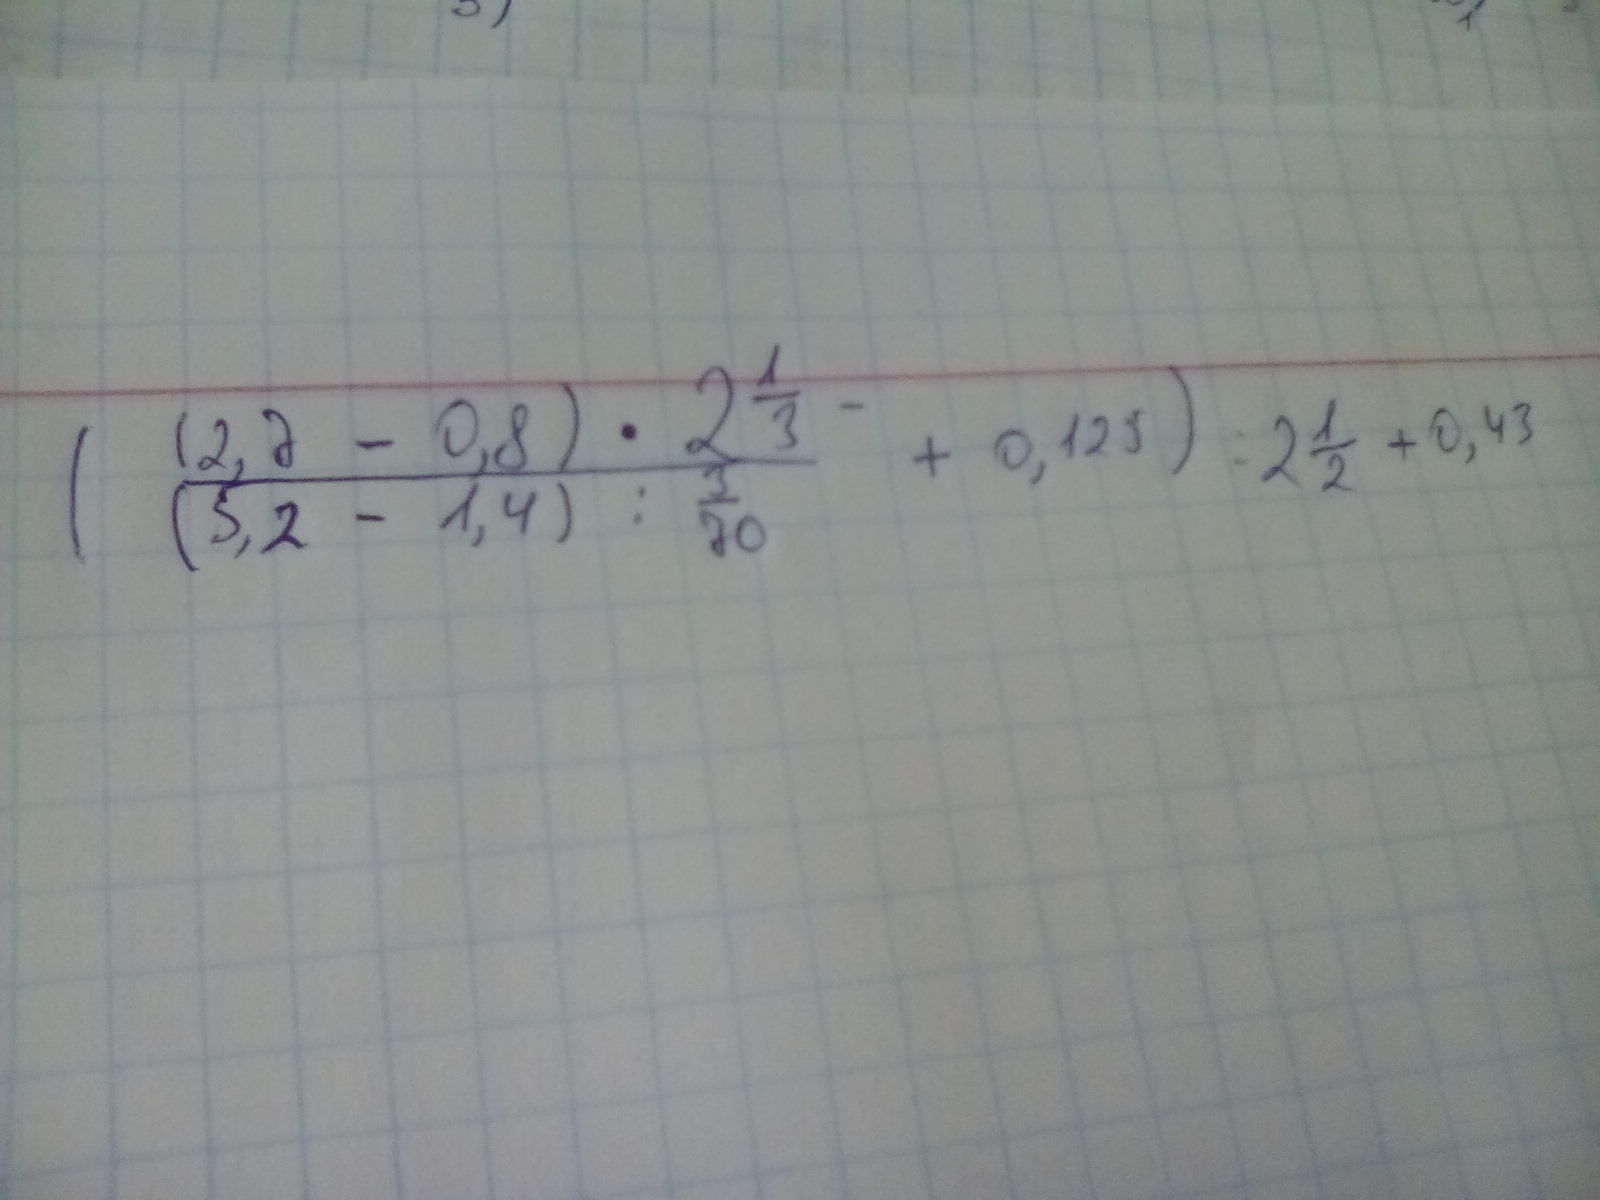 5)
( (2,7 - 0,8) · 2 1/3 - / (5,2 - 1,4) : 3/70 + 0,125) : 2 1/2 + 0,43